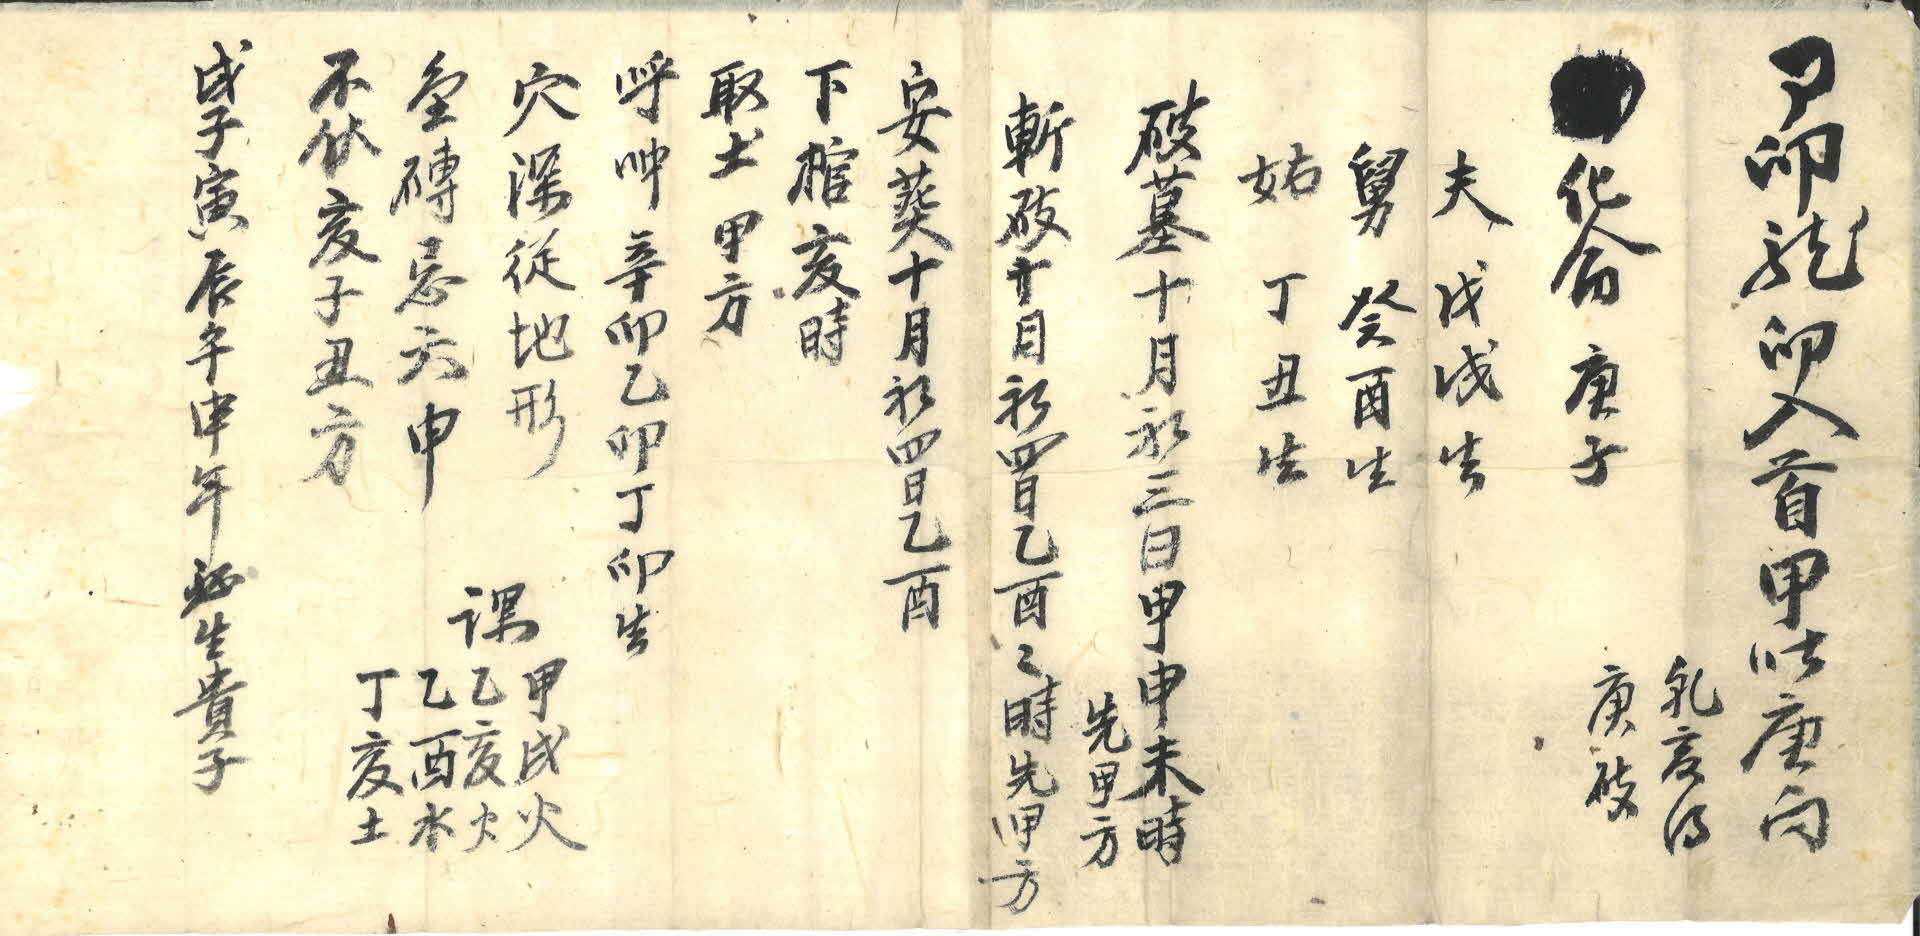 卯龍卯入首甲坐庚向
乳亥得
庚破
化命 庚子
夫 戊戌生
舅 癸酉生
姑 丁丑生
破墓十月初三日甲申未時
先甲方
斬破十月初四日乙酉〻時先甲方
安葬十月初四日乙酉
下棺亥時
取土 甲方
呼冲 辛卯乙卯丁卯生
穴深從地形
金磚忌六申
不伏亥子丑方
課
甲戌火
乙亥火
乙酉水
丁亥土
戊子寅辰午申年必生貴子